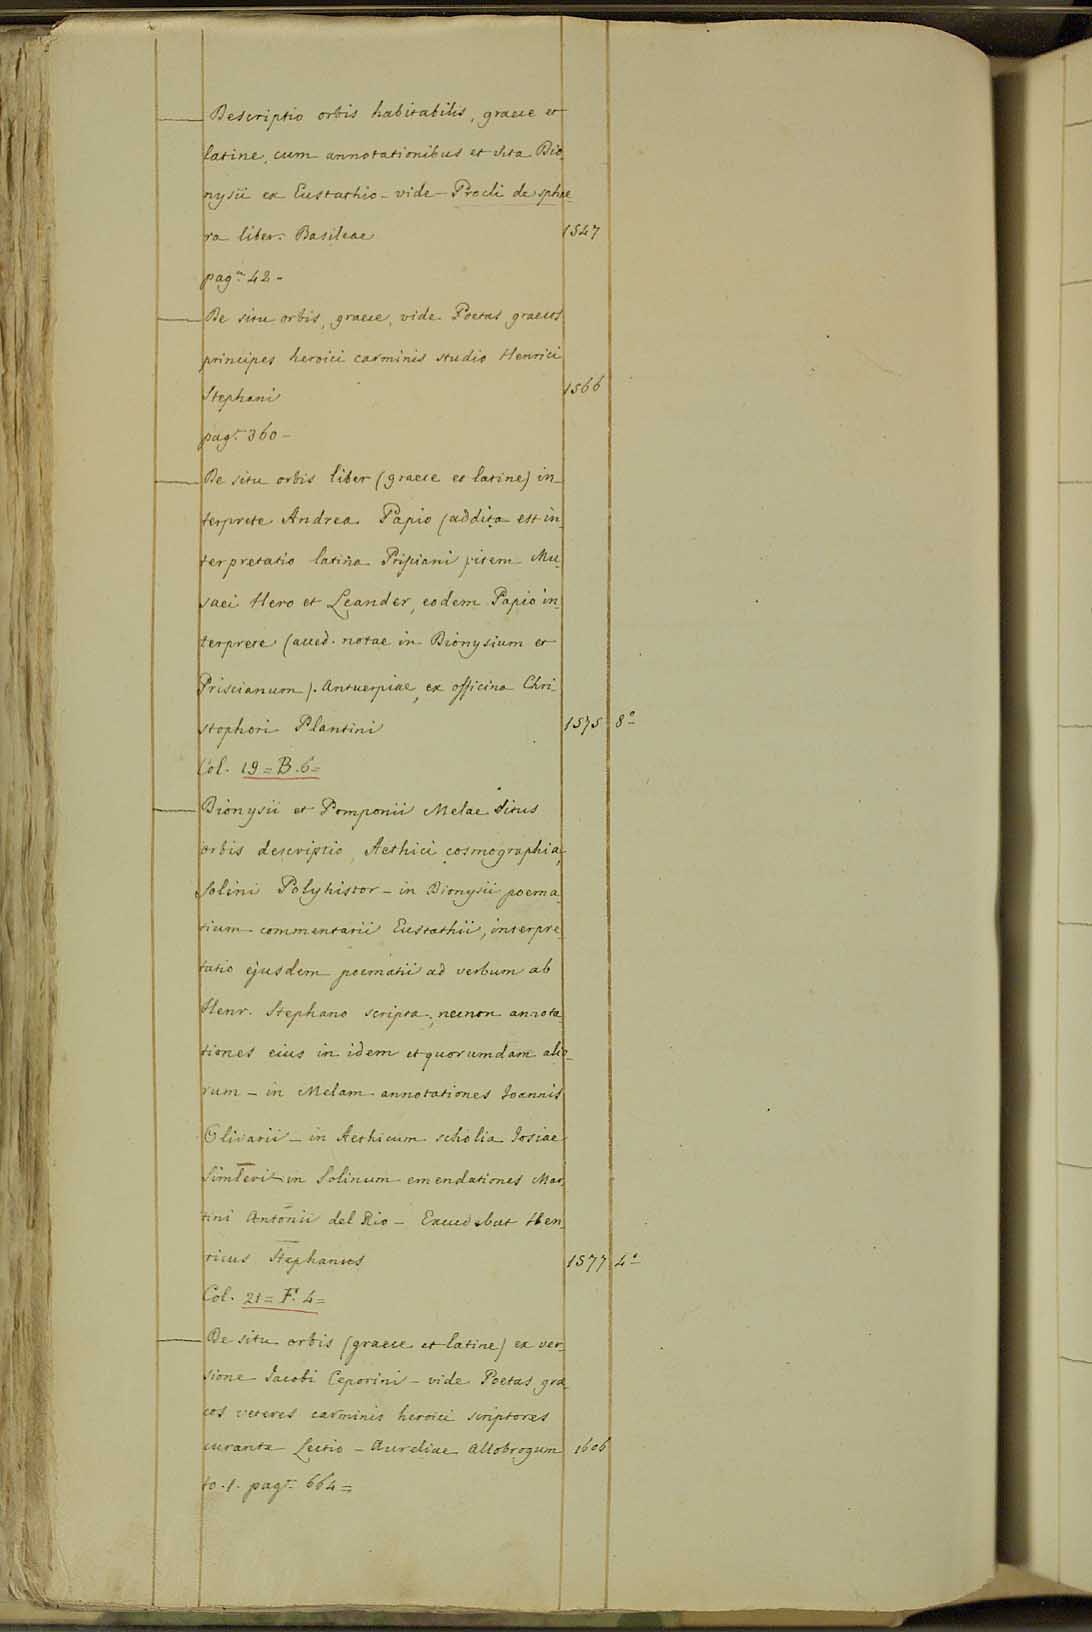 Descriptio orbis habitabilis, graece et
latine, cum annotationibus et vita Dio_
nysii ex Eustathio - vide - Procli de sphae_
ra liber. Basileae 1547
pag.ª 42 -
De situ orbis, graece, vide Poetas graecos
principes heroici carminis studio Henrici
Stephani 1566
pag.ª 360 -
De situ orbis liber (graece et latine) in_
terprete Andrea Papio (addita est in_
terpretatio latina Prisciani) item Mu_
saei Hero et Leander, eodem Papio in_
terprete (acced. notae in Dionysium et
Priscianum). Antuerpiae, ex officina Chri_
stophori Plantini 1575 8º
Col. 19 = B. 6 =
Dionysii et Pomponii Melae situs
orbis descriptio, Aethici cosmographia,
Solini Polyhistor - in Dionysii poema_
tium commentarii Eustathii, interpre_
tatio ejusdem poematii ad verbum ab
Henr. Stephano scripta, necnon annota_
tiones eius in idem et quorumdam alio_
rum - in Melam annotationes Joannis
Olivarii - in Aethicum scholia Josiae
Simleri - in Solinum emendationes Mar_
tini Antonii del Rio - Excudebat Hen_
ricus Stephanus 1577 4º
Col. 21 = F. 4 =
De situ orbis (graece et latine) ex ver_
sione Jacobi Ceporini - vide Poetas grae_
cos veteres carminis heroici scriptores
curante Lectio - Aureliae Allobrogum 1606
to. 1. pag.ª 664 =